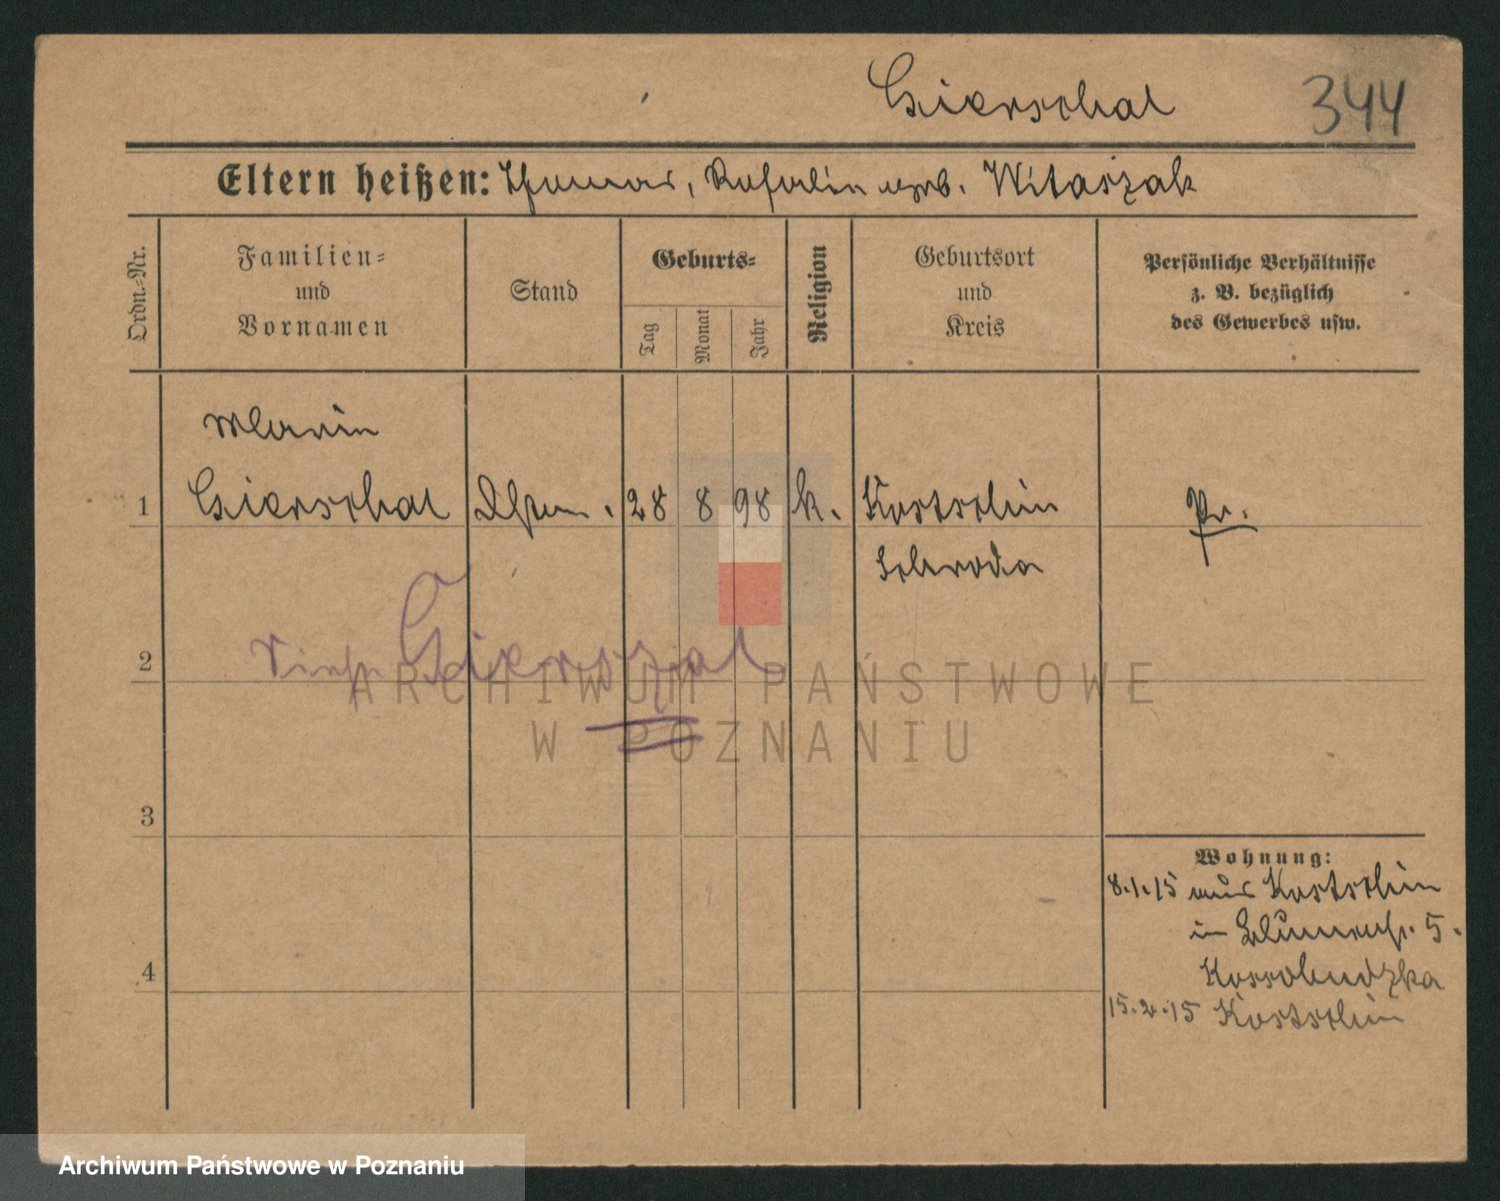 Gierschal 344
Eltern heißen: Thomas, Rosalie geb. Witaszak
Ordn.-Nr.
Familien-
und
Vornamen
Stand
Geburts-
Tag
Monat
Jahr
Religion
Geburtsort
und
Kreis
Persönliche Verhältnisse
z. B. bezüglich
des Gewerbes usw.
Marie
1 Gierschal 28 8 98 k. Kostschin Pr.
Schroda
2 Siehe Gierszal
3
4
Wohnung:
8.1.15 aus Kostschin
in Blumenstr. 5.
Kossobudzka
15.2.15 Kostschin
ARCHIWUM PAŃSTWOWE
W POZNANIU
Archiwum Państwowe w Poznaniu